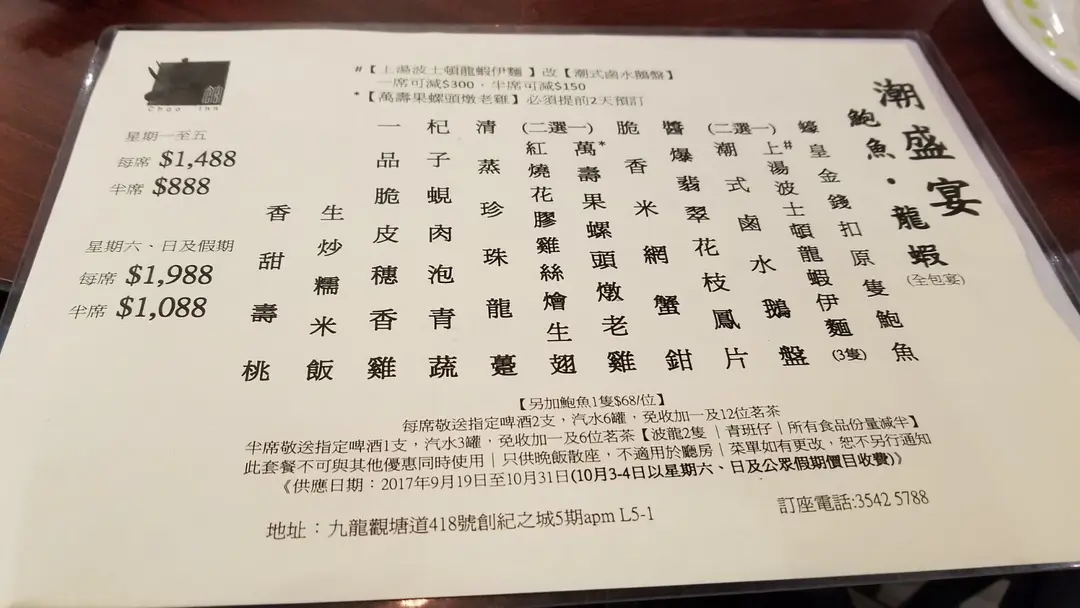 潮盛宴
鮑魚・龍蝦
(全包宴)
蠔皇金錢扣原隻鮑魚
(二選一)
上#湯波士頓龍蝦伊麵
(3隻)
潮式鹵水鵝盤
醬爆翡翠花枝鳳片
脆香米網蟹鉗
(二選一)
萬*壽果螺頭燉老雞
紅燒花膠雞絲燴生翅
清蒸珍珠龍躉
杞子蜆肉泡青蔬
一品脆皮穗香雞
生炒糯米飯
香甜壽桃
#【上湯波士頓龍蝦伊麵】改【潮式鹵水鵝盤】
一席可減$300，半席可減$150
*【萬壽果螺頭燉老雞】必須提前2天預訂
Chao Inn
星期一至五
每席 $1,488
半席 $888
星期六、日及假期
每席 $1,988
半席 $1,088
【另加鮑魚1隻$68/位】
每席敬送指定啤酒2支，汽水6罐，免收加一及12位茗茶
半席敬送指定啤酒1支，汽水3罐，免收加一及6位茗茶【波龍2隻｜青班仔｜所有食品份量減半】
此套餐不可與其他優惠同時使用｜只供晚飯散座，不適用於廳房｜菜單如有更改，恕不另行通知
《供應日期：2017年9月19日至10月31日(10月3-4日以星期六、日及公眾假期價目收費)》
地址：九龍觀塘道418號創紀之城5期apm L5-1
訂座電話:3542 5788